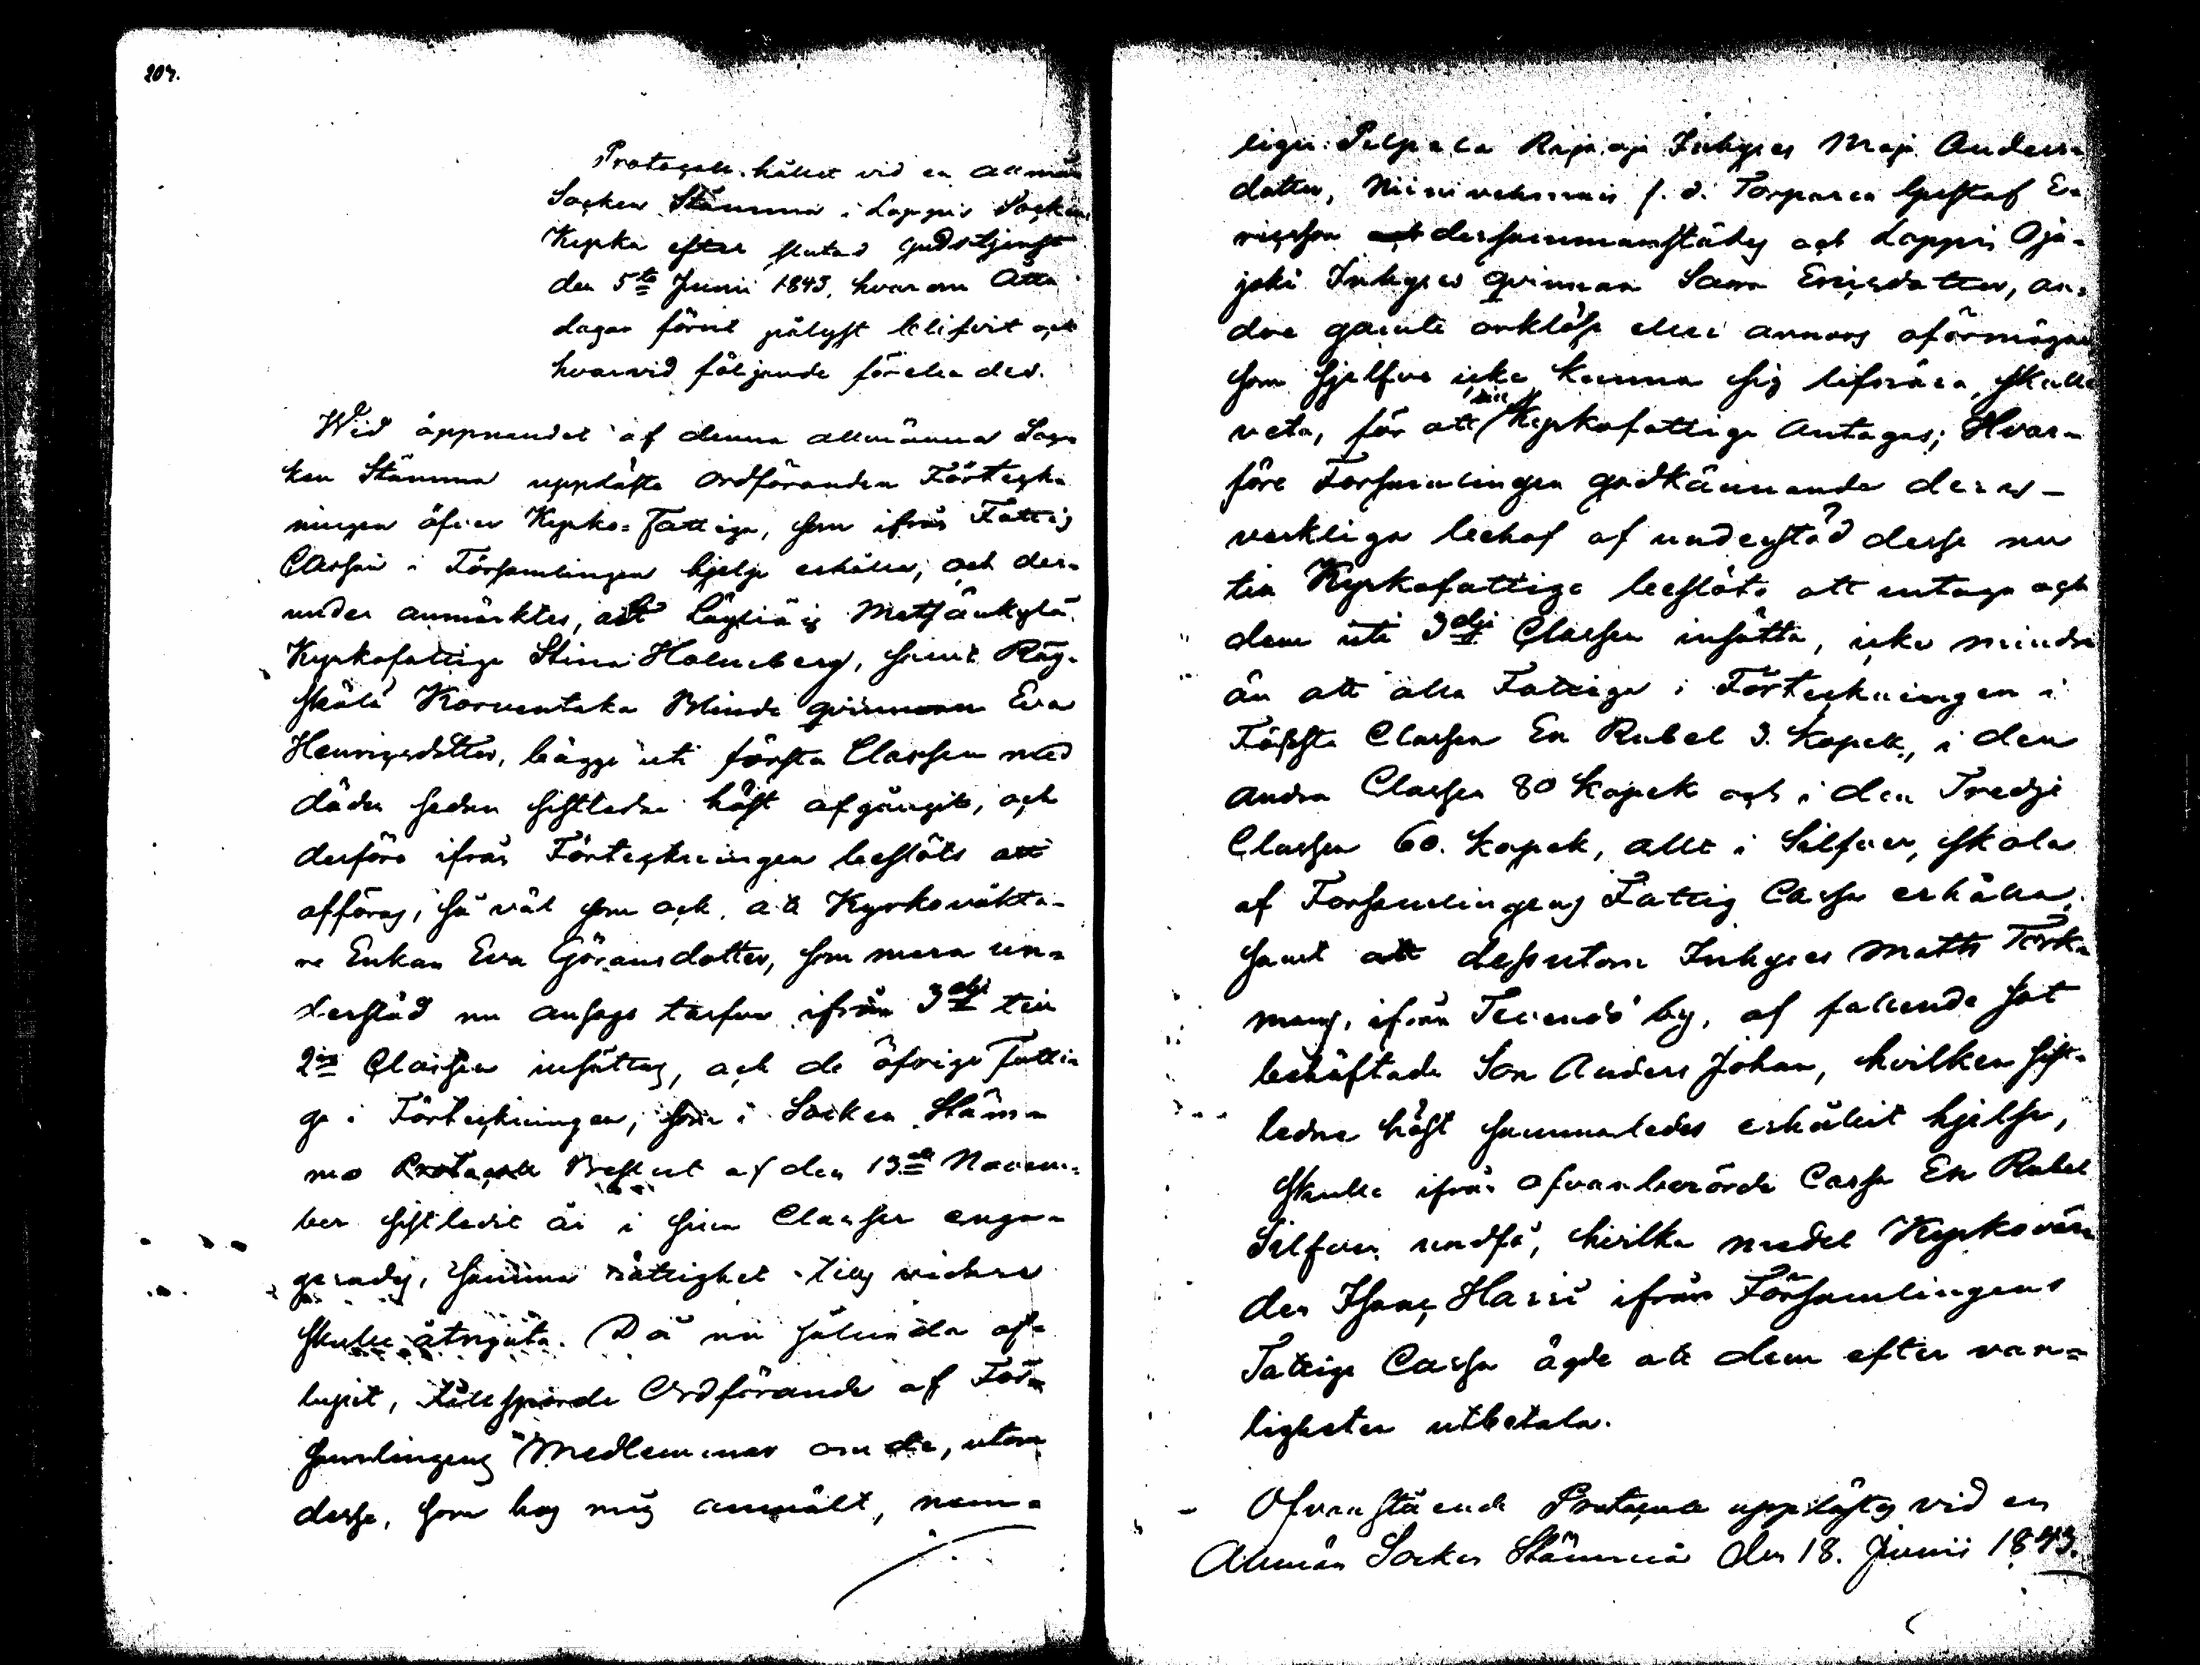 204.
Protocoll hållet vid en allmän
Socken Stämma i Lappis Socken
Kyrka efter slutad Gudstjenst
den 5te Junii 1843, hvarom Åtta
dagar förut pålyst blifvit och
hvarvid följande förelades.
Wid öppnandet af denna allmänna Soc-
ken Stämma uppläste Ordföranden Förteck-
ningen öfver Kyrko-Fattige, som ifrån Fattig
Classen i Församlingen hjelp erhålla, och der-
under anmärktes, att Metsänkylä
Kyrkofattige Stina Holmberg, samt
Korventaka Blinda qvinnan Eva
Henricsdotter, bägge uti första Classen med
döden sedan sistledne höst afgångit, och
derföre ifrån Förteckningen beslöts att
afföras, så väl som ock, att Kyrkovakta-
re Enkan Eva Göransdotter, som mera un-
derstöd nu ansågs tarfva ifrån 3dje till
2dra Classen insättas, och de öfrige Fatti-
ge i Förteckningen, som i Socken Stäm-
mo Protocoll Beslut af den 13de Novem-
ber sistledit år i sina Classer enga-
gerades, samma rättighet tills vidare
skulle åtnjuta. Då nu sålunda af-
lupit, tillsporde Ordförande af För-
samlingens Medlemmar om de, utom
desse, som hos mig anmält, nem-
ligen: Pelpala Rajaoja Inhyses Maja Anders-
dotter, f. d. Torparen Gustaf E-
ricsson dersammanstädes och Lappis Oja-
joki Inhyses qvinnan Sara Ericsdotter, an-
dre gamle orklöse eller annars oförmögne
som sjelfve icke kunna sig lifnära, skulle
veta, för att till Kyrkofattige Antagas; Hvar-
före Forsamlingen godkännande deras
verkliga behof af understöd desse nu
till Kyrkofattige beslöts att antaga och
dem uti 3dje Classen insätta, icke mindre
än att alla Fattige i Förteckningen i
Första Classen En Rubel 3. Kopek, i den
Andra Classen 80 Kopek och i den Tredje
Classen 60. Kopek, allt i Silfver, skola
af Forsamlingens Fattig Cassa erhålla,
samt att dessutom Inhyses Matts Tork-
mans, ifrån by, af fallande sot
behäftade Son Anders Johan, hvilken sist-
ledne höst sammaledes erhållit hjelp,
skulle ifrån ofvanberörde Cassa En Rubel
Silfver undfå, hvilka medel Kyrkovär-
den Isaac Harri ifrån Församlingens
Fattige Cassa ägde att dem efter van-
ligheten utbetala.
Ofvanstående Protocoll upplästes vid en
Allmän Socken Stämma den 18. Junii 1843.